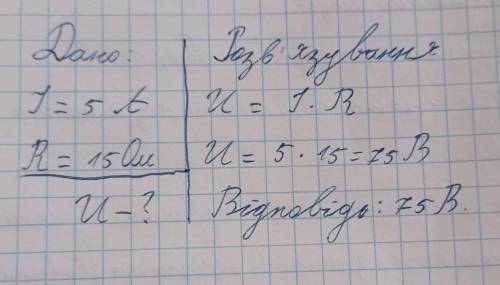 Дано:
I = 5 A
R = 15 Ом
U - ?
Розв'язування
U = I · R
U = 5 · 15 = 75 В
Відповідь: 75 В.